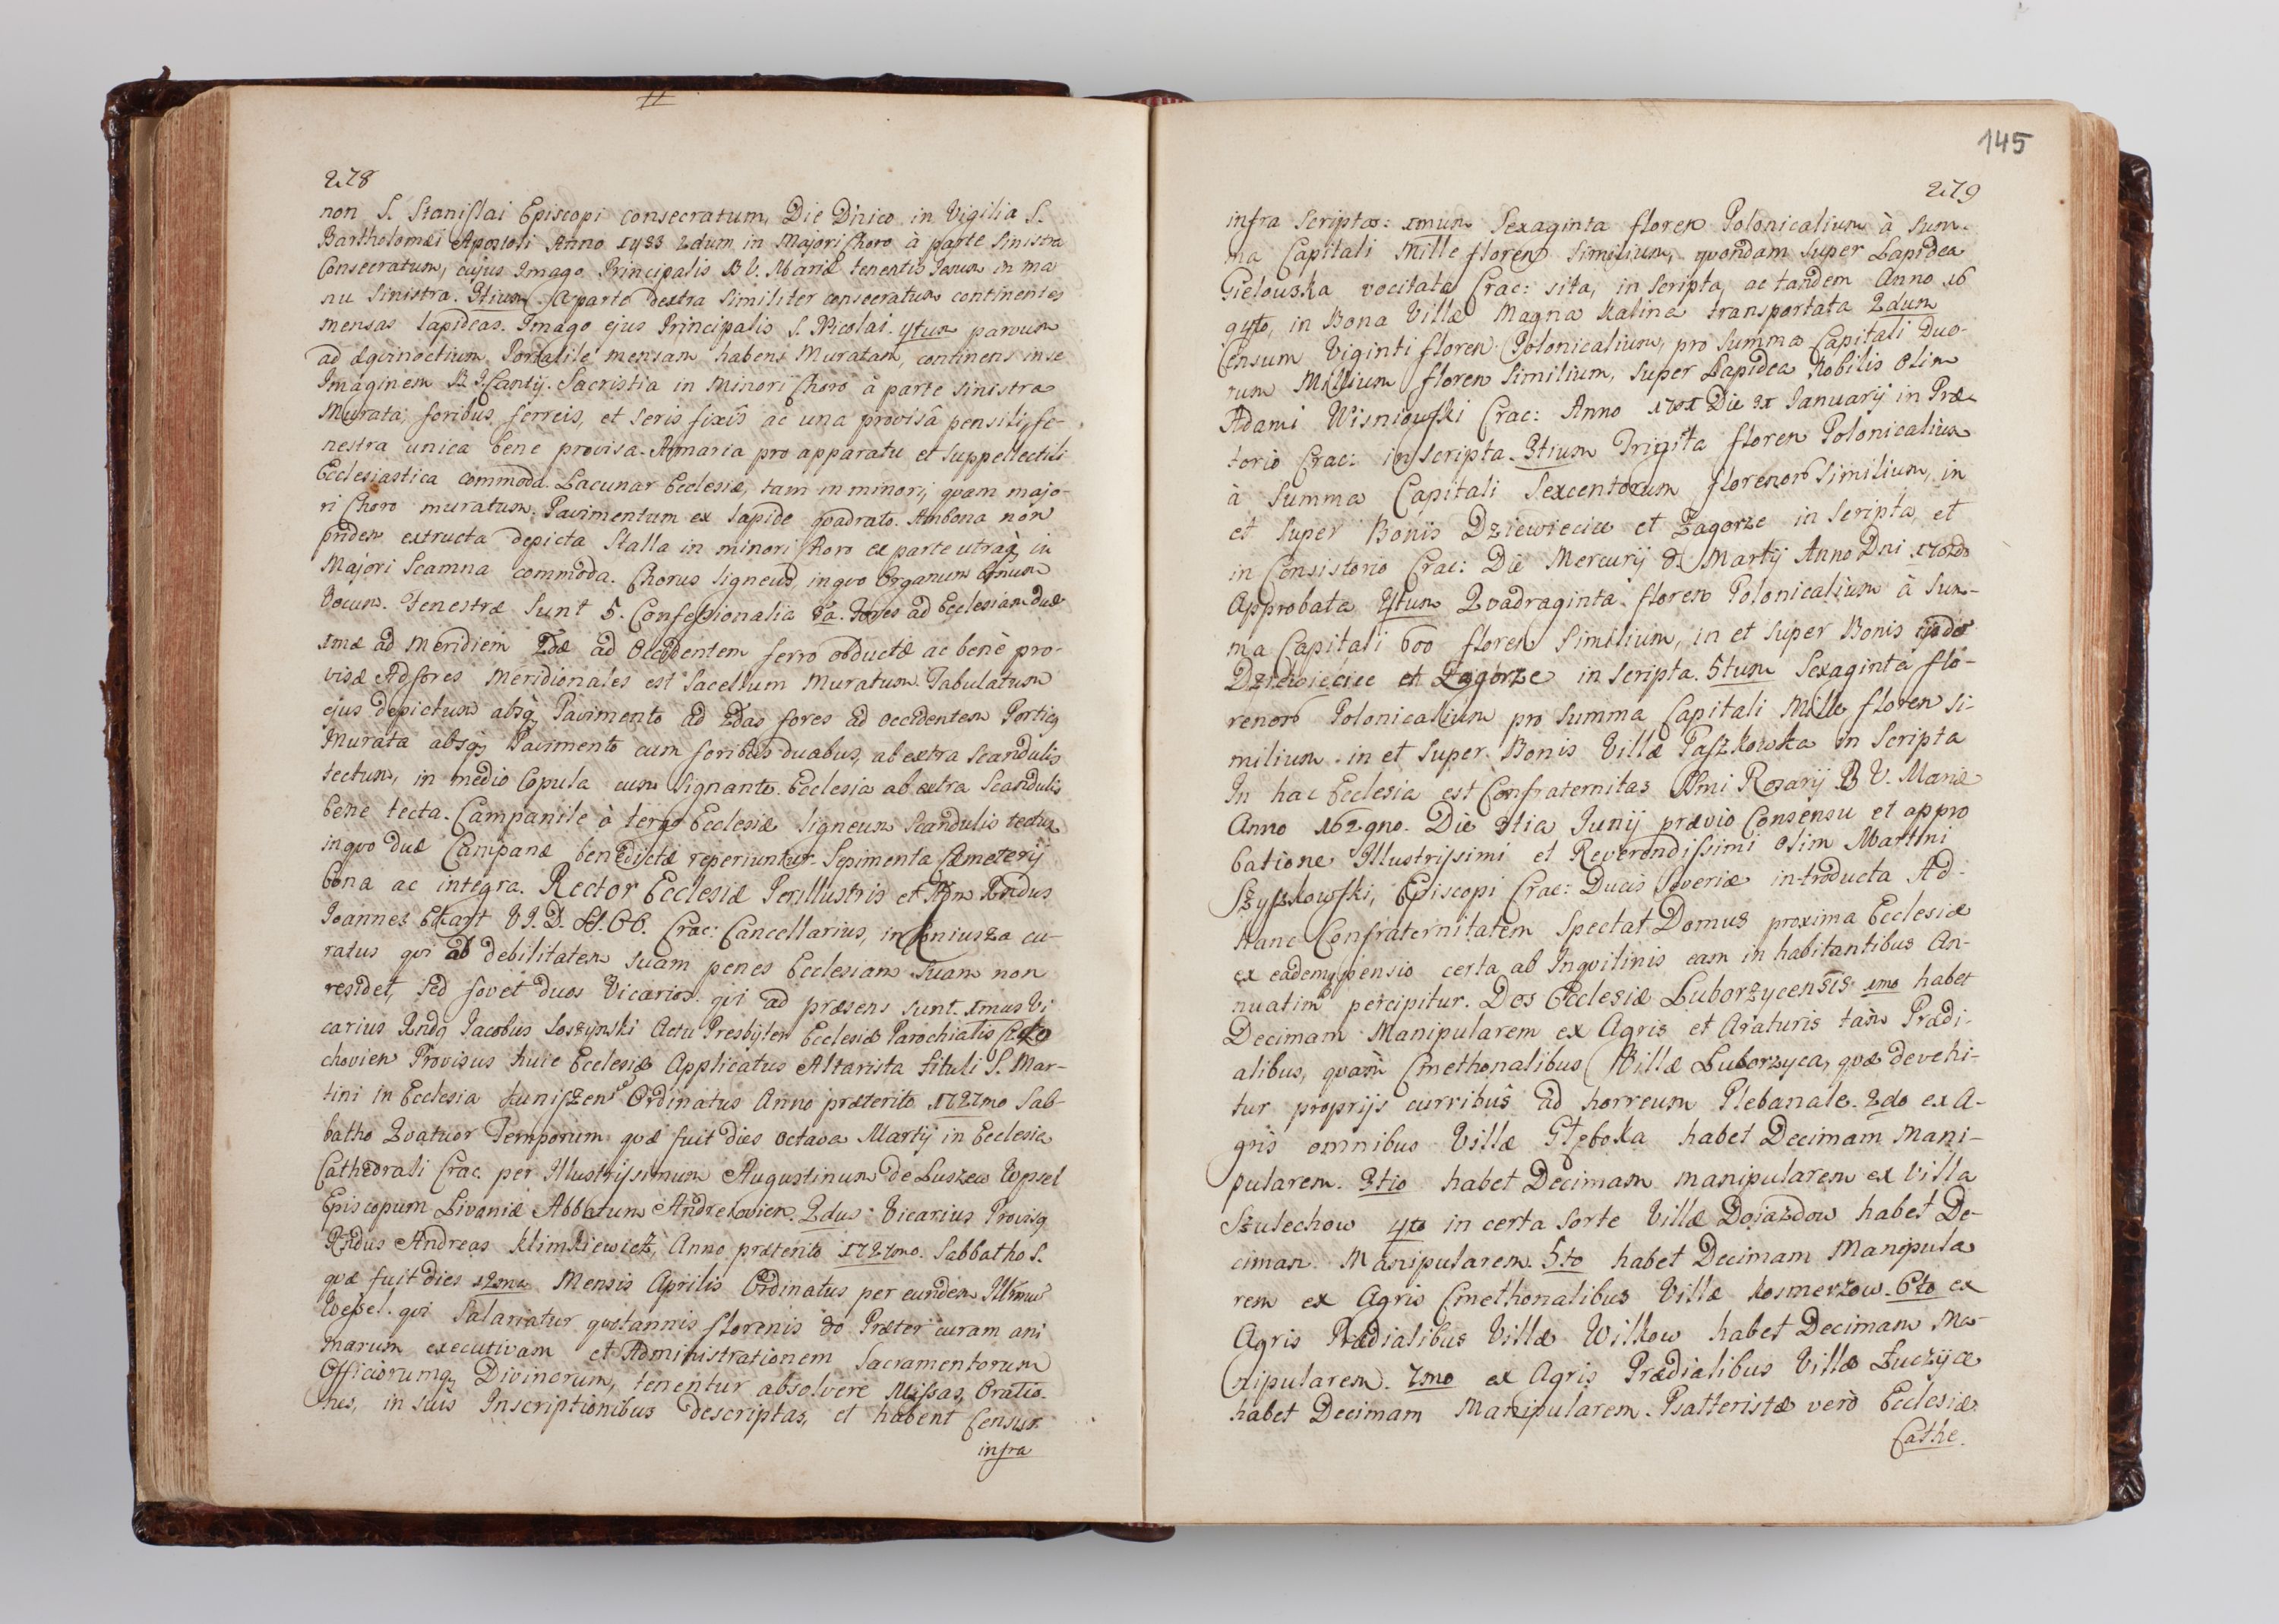 278
non S. Stanislai Episcopi consecratum, Die Dnico in Vigilia S.
Bartholomæi Apostoli Anno 1433 2dum in Majori Choro à parte Sinistra
Consecratum, cujus Imago Principalis B V. Mariæ tenentis Jesum in ma
nu Sinistra. 3tium A parte dextra Similiter consecratum continentes
mensas lapideas. Imago ejus Principalis S. Nicolai. 4tum parvum
ad æqvinoctium Portatile mensam habens Muratam, continens in se
Imaginem B. J. Cantij. Sacristia in Minori Choro à parte sinistra
Murata, foribus ferreis, et seris fixis ac una provisa pensili, fe-
nestra unica bene provisa. Armaria pro apparatu et Suppellectili
Ecclesiastica commoda. Lacunar Ecclesiæ, tam in minori, qvam majo-
ri Choro muratum. Pavimentum ex lapide qvadrato. Ambona non
pridem extructa depicta Stalla in minori Choro ex parte utraq, in
Majori Scamna commoda. Chorus ligneus in qvo Organum 6 mum
Vocum. Fenestræ Sunt 5. Confessionalia Fores ad Ecclesiam duæ
1mæ ad Meridiem 2dæ ad Occidentem ferro obductæ ac benè pro-
visæ Ad fores Meridionales est Sacellum Muratum. Tabulatum
ejus depictum absq Pavimento ad 2das fores ad occidentem Porticq
Murata absq Pavimento cum foribus duabus, ab extra Scandulis
tectum, in medio Copula cum Signanto. Ecclesia ab extra Scandulis
bene tecta. Campanile à tergo Ecclesiæ ligneum Scandulis tectum
in qvo duæ Campanæ benedictæ reperiuntur. Sepimenta Cæmeterij
bona ac integra. Rector Ecclesiæ Perillustris et Rndus
Joannes Ekart V J. D. Crac: Cancellarius, in Koniusza cu-
ratus qvi ob debilitatem suam penes Ecclesiam Suam non
residet, Sed fovet duos Vicarios qvi ad præsens sunt. 1mus Vi
carius Rndq Jacobus Loszynski Actu Presbyter Ecclesiæ Parochialis
chovien Provisus huic Ecclesiæ Applicatus Altarista tituli S. Mar-
tini in Ecclesia Ordinatus Anno præterito 1727mo Sab-
batho Qvatuor Temporum qvæ fuit dies octava Martij in Ecclesia
Cathedrali Crac. per Illustrissimum Augustinum de
Episcopum Livoniæ Abbatum Andreiovien. 2dus Vicarius Provisq
Rndus Andreas Klimkiewicz, Anno præterito 1727mo. Sabbatho S.
qvæ fuit dies 12ma Mensis Aprilis Ordinatus per eundem Illmum
Wessel. qvi Salariatur qvotannis florenis 80 Præter curam ani
marum executivam et Administrationem Sacramentorum
Officiorumq Divinorum, tenentur absolvere Missas, Oratio-
nes, in suis Inscriptionibus descriptas, et habent Censum
infra
145
279
infra Scriptos: 1mum Sexaginta floren Polonicalium à Sum-
ma Capitali Mille floren Similium, qvondam Super Lapidea
Gielowska vocitata Crac: sita, in Scripta, ac tandem Anno 16
94to, in Bona Villæ Magna Kalina transportata 2dum
Censum Viginti floren Polonicalium, pro Summa Capitali Duo-
rum Millium floren Similium, Super Lapidea Nobilis Olim
Adami Wisniowski Crac: Anno 1701 Die 31 Januarij in Præ-
torio Crac: in scripta. 3tium Triginta floren Polonicalium
à Summa Capitali Sexcentorum florenor Similium, in
et Super Bonis Dziewiecice et Zagorze in Scripta, et
in Consistorio Crac: Die Mercurij 8. Martij Anno Dni
Approbata 4tum Qvadraginta floren Polonicalium à Sum-
ma Capitali 600 floren Similium, in et Super Bonis
Dziewieciee et Zagorze in scripta. 5tum Sexaginta flo-
renor Polonicalium pro Summa Capitali Mille floren Si-
milium in et Super Bonis Villæ Paszkowka in Scripta
In hac Ecclesia est Confraternitas SSmi Rosarij B V. Mariæ
Anno 1629no. Die 3tia Junij prævio Consensu et appro
batione Illustrissimi et Reverendissimi Olim Martini
Szyszkowski, Episcopi Crac: Ducis Severiæ introducta Ad
hanc Confraternitatem Spectat Domus proxima Ecclesiæ
ex eademq pensio certa ab Inqvilinis eam in habitantibus An-
nuatim percipitur. Dos Ecclesiæ Luborzycensis 1mo habet
Decimam Manipularem ex Agris et Araturis tam Prædi-
alibus, qvam Cmethonalibus Villæ Luborzyca, qvæ devehi-
tur proprijs curribus ad horreum Plebanale. 2do ex A-
gris omnibus Villæ Głęboka habet Decimam Mani-
pularem. 3tio habet Decimam manipularem ex Villa
Szulechow 4to in certa Sorte Villæ Dojazdow habet De-
cimam Manipularem. 5to habet Decimam Manipula
rem ex Agris Cmethonalibus Villæ Kosmerzow. 6to ex
Agris Prædialibus Villæ Wilkow habet Decimam Ma-
nipularem. 7mo ex Agris Prædialibus Villæ Łuczyce
habet Decimam Manipularem. Psalteristæ verò Ecclesiæ
Cathe.